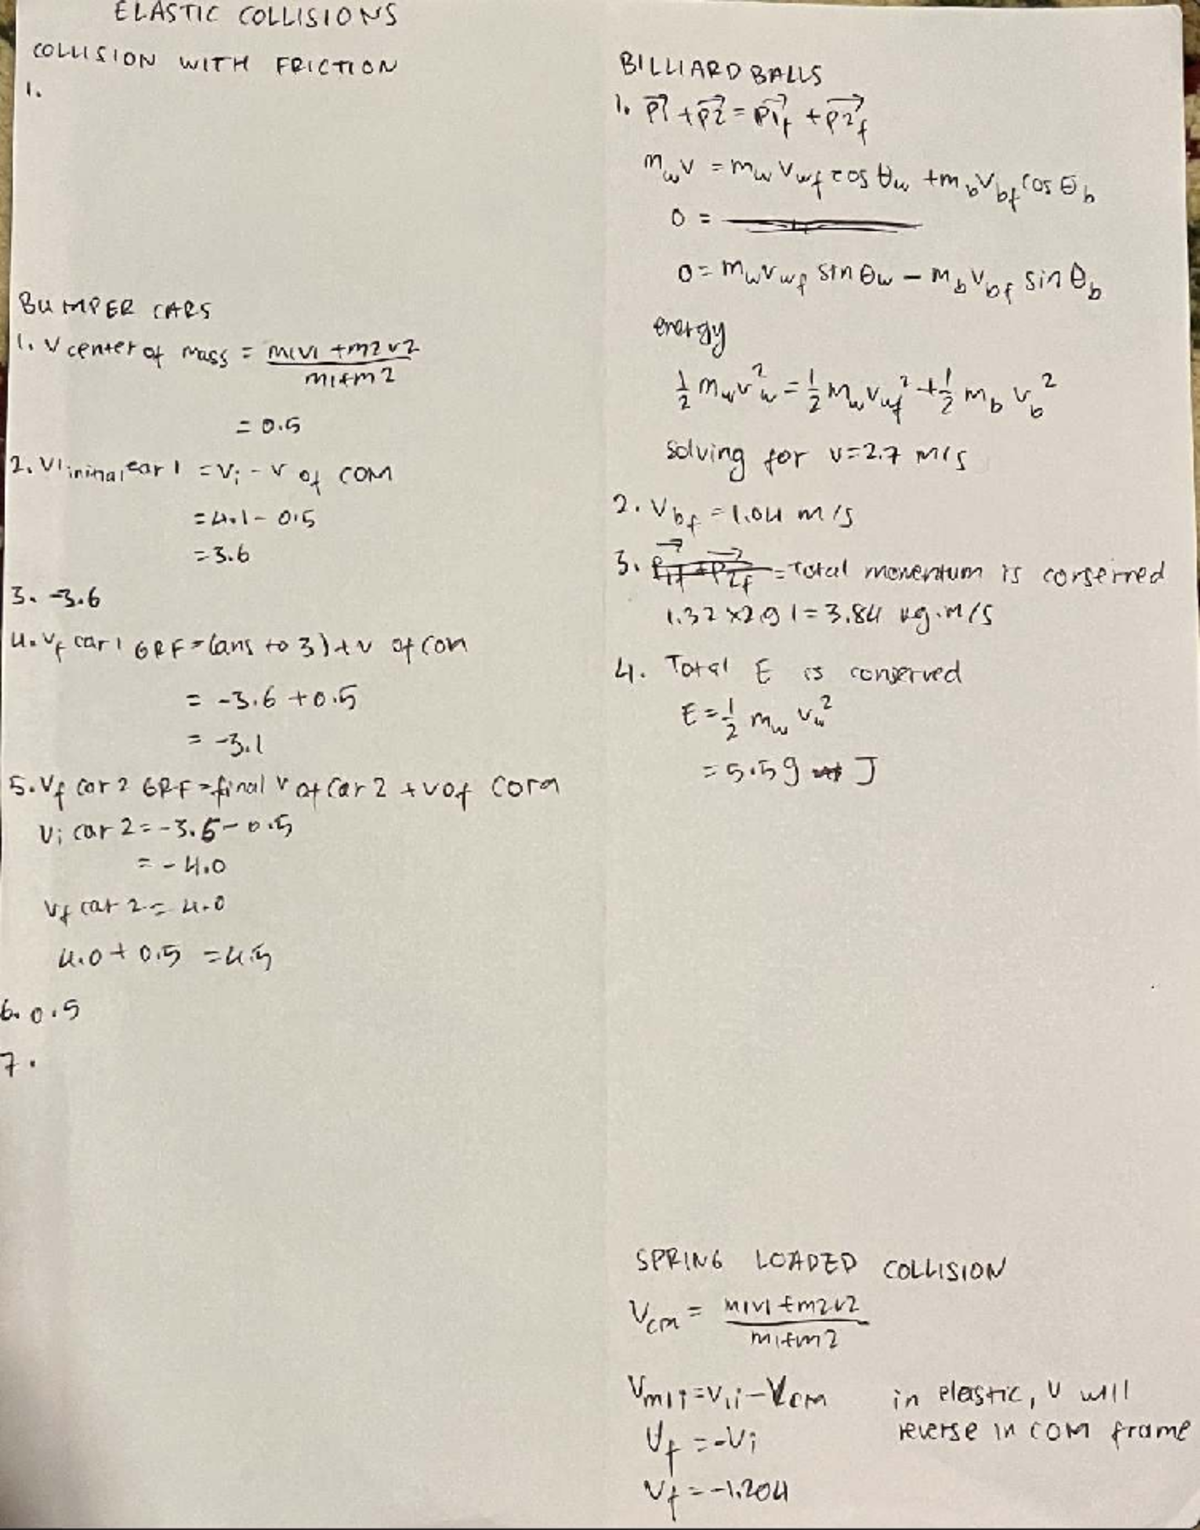 ELASTIC COLLISIONS
COLLISION WITH FRICTION
1.
BUMPER CARS
1. V center of mass = m1v1 + m2v2 / m1+m2
= 0.5
2. V1 ininal, car 1 = Vi - V of COM
= 4.1 - 0.5
= 3.6
3. -3.6
4. Vf car 1 GRF = (ans to 3) + v of COM
= -3.6 + 0.5
= -3.1
5. Vf car 2 GRF = final V of car 2 + v of COM
Vi car 2 = -3.5 - 0.5
= -4.0
Vf car 2 = 4.0
4.0 + 0.5 = 4.5
6. 0.5
7.
BILLIARD BALLS
1. p1 + p2 = p1f + p2f
mwv = mwvwf cos θw + mbvbf cos θb
0 =
0 = mwvwf sin θw - mbvbf sin θb
energy
1/2 mwvw² = 1/2 mwvwf² + 1/2 mb vb²
solving for v = 2.7 m/s
2. Vbf = 1.04 m/s
3. = Total momentum is conserved
1.32 × 2.91 = 3.84 kg·m/s
4. Total E is conserved
E = 1/2 mw vw²
= 5.59 J
SPRING LOADED COLLISION
Vcm = m1v1 + m2v2 / m1+m2
Vm1i = V1i - Vcm in elastic, v will
Vf = -Vi reverse in COM frame
Vf = -1.204